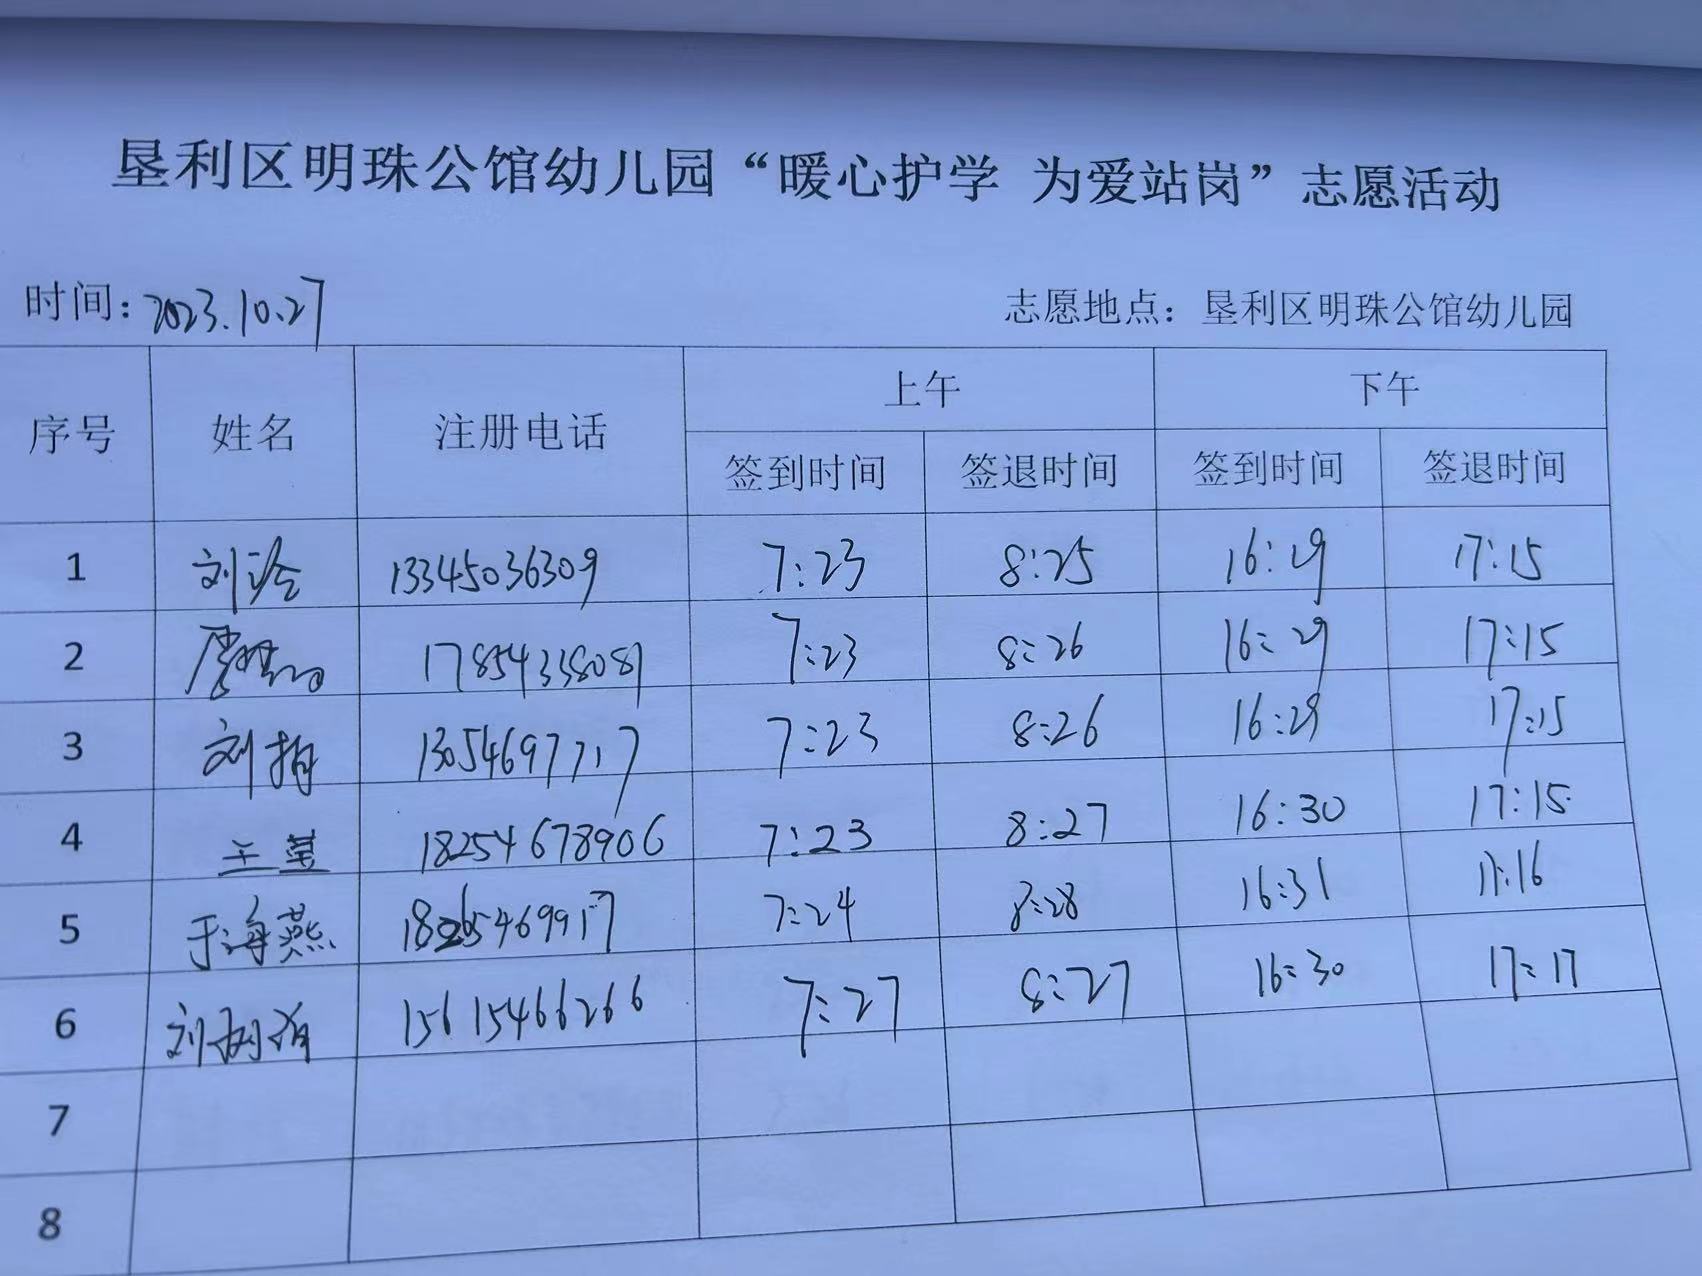 垦利区明珠公馆幼儿园“暖心护学 为爱站岗”志愿活动
时间：2023.10.27 志愿地点：垦利区明珠公馆幼儿园
序号 姓名 注册电话 上午 下午
签到时间 签退时间 签到时间 签退时间
1 刘 13345036309 7:23 8:25 16:29 17:15
2 17854338081 7:23 8:26 16:29 17:15
3 刘 13054697717 7:23 8:26 16:29 17:15
4 王莹 18254678906 7:23 8:27 16:30 17:15
5 于海燕 18265469917 7:24 8:28 16:31 17:16
6 刘 15615466266 7:27 8:27 16:30 17:17
7
8